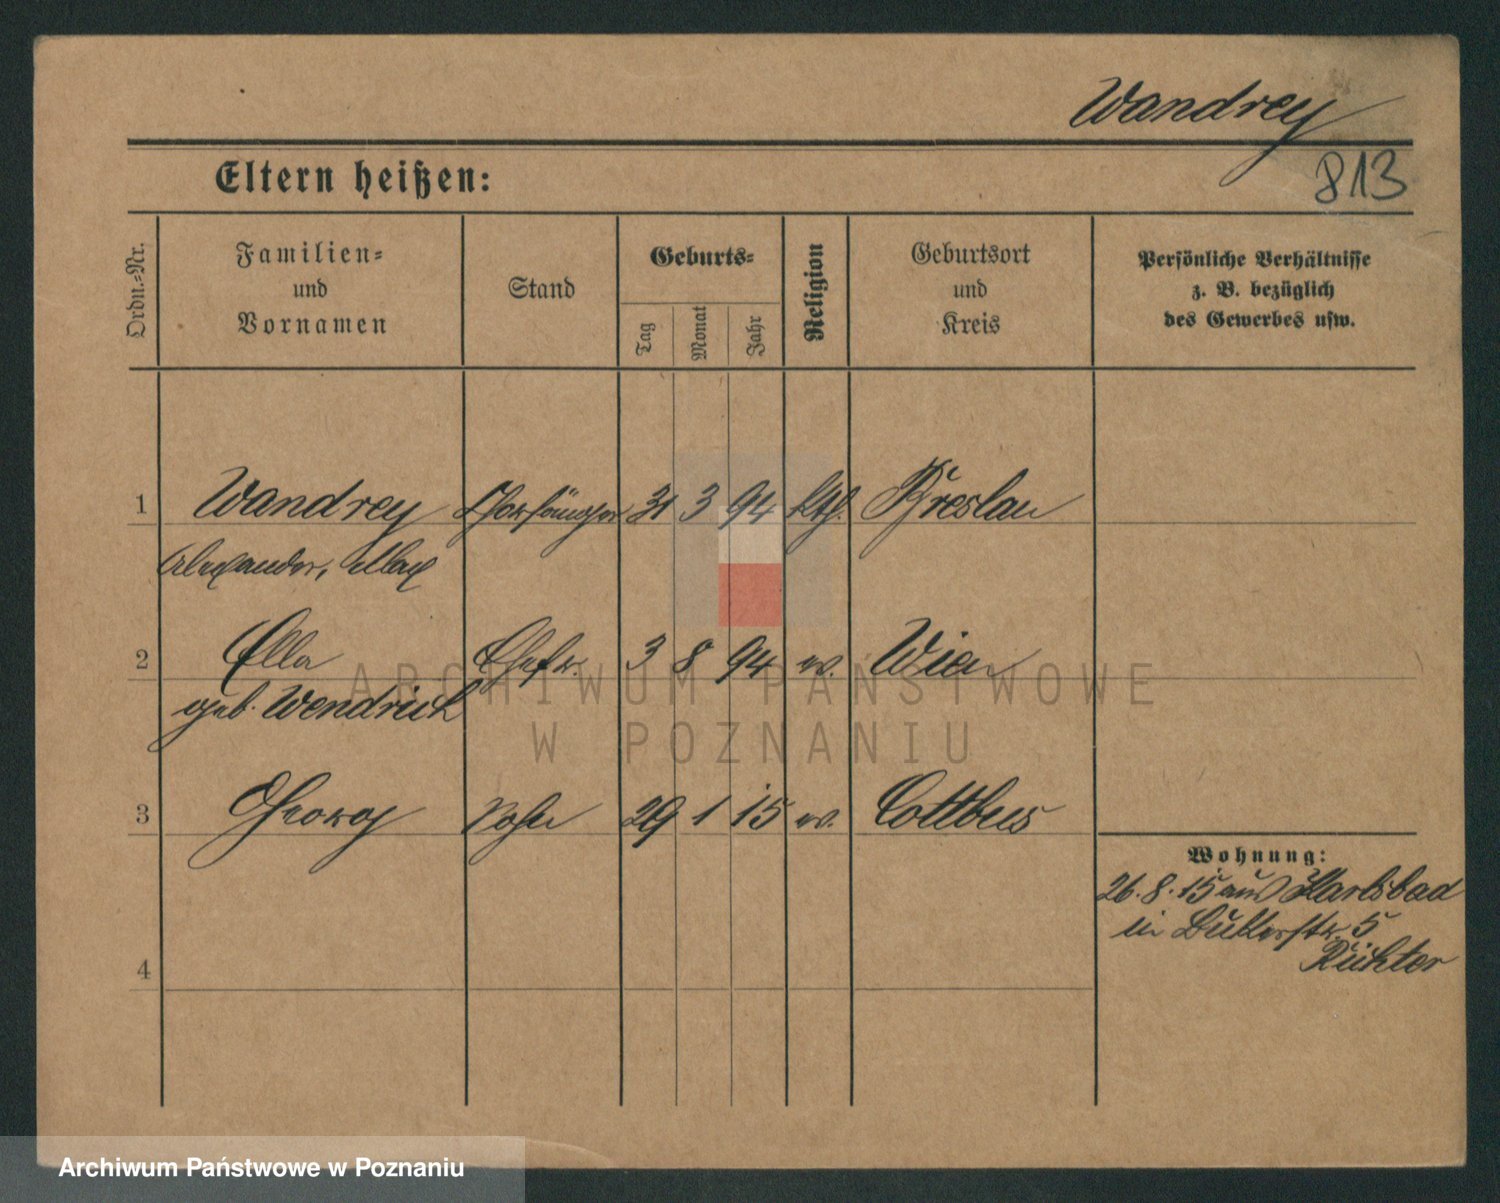 Wandrey
813
Eltern heißen:
Ordn.-Nr.
Familien-
und
Vornamen
Stand
Geburts-
Tag
Monat
Jahr
Religion
Geburtsort
und
Kreis
Persönliche Verhältnisse
z. B. bezüglich
des Gewerbes usw.
1 Wandrey Chorsänger 31 3 94 kth. Breslau
Alexander, Max
2 Ella Ehefr. 3 8 94 ev. Wien
geb. Wendrich
3 Georg Sohn 29 1 15 ev. Cottbus
Wohnung:
26.8.15 aus Karlsbad
in Butterstr. 5
Richter
4
ARCHIWUM PAŃSTWOWE
W POZNANIU
Archiwum Państwowe w Poznaniu